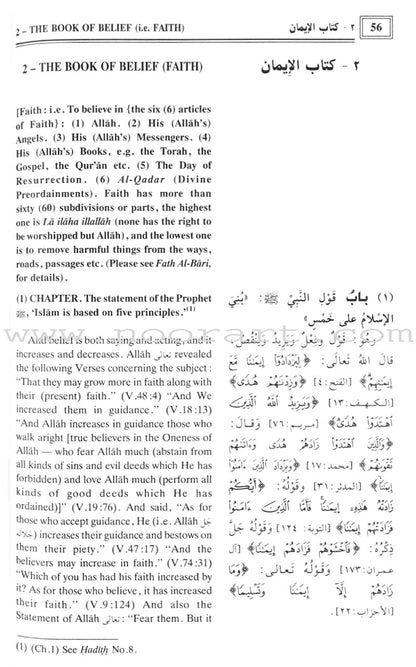 2 – THE BOOK OF BELIEF (i.e. FAITH)
٢ - كتاب الإيمان
56
2 – THE BOOK OF BELIEF (FAITH)
٢ - كتاب الإيمان
[Faith : i.e. To believe in {the six (6) articles
of Faith} : (1) Allâh. (2) His (Allâh's)
Angels. (3) His (Allâh's) Messengers. (4)
His (Allâh's) Books, e.g. the Torah, the
Gospel, the Qur'ân etc. (5) The Day of
Resurrection. (6) Al-Qadar (Divine
Preordainments). Faith has more than
sixty (60) subdivisions or parts, the highest
one is Lâ ilâha illallâh (none has the right to
be worshipped but Allâh), and the lowest one
is to remove harmful things from the ways,
roads, passages etc. (Please see Fath Al-Bâri,
for details).
(1) CHAPTER. The statement of the Prophet
ﷺ, 'Islâm is based on five principles.'(1)
And belief is both saying and acting, and it
increases and decreases. Allâh تعالى revealed
the following Verses concerning the subject :
"That they may grow more in faith along with
their (present) faith." (V.48:4) "And We
increased them in guidance." (V.18:13)
"And Allâh increases in guidance those who
walk aright [true believers in the Oneness of
Allâh — who fear Allâh much (abstain from
all kinds of sins and evil deeds which He has
forbidden) and love Allâh much (perform all
kinds of good deeds which He has
ordained)]" (V.19:76). And said, "As for
those who accept guidance, He (i.e. Allâh جل
جلاله) increases their guidance and bestows on
them their piety." (V.47:17) "And the
believers may increase in faith." (V.74:31)
"Which of you has had his faith increased by
it? As for those who believe, it has increased
their faith." (V.9:124) And also the
Statement of Allâh تعالى : "Fear them. But it
(١) بابُ قَوْلِ النَّبِيِّ ﷺ: «بُنِيَ
الإسْلَامُ على خَمْسٍ»
وهُوَ: قَوْلٌ وفِعْلٌ ويَزِيدُ ويَنْقُصُ.
قالَ اللهُ تَعَالَى: ﴿لِيَزْدَادُوٓا إِيمَٰنًا مَّعَ
إِيمَٰنِهِمْ﴾ [الفتح:٤] ﴿وَزِدْنَٰهُمْ هُدًى﴾
[الكهف:١٣] ﴿وَيَزِيدُ ٱللَّهُ ٱلَّذِينَ
ٱهْتَدَوْا هُدًى﴾ [مريم:٧٦] وَقَالَ:
﴿وَٱلَّذِينَ ٱهْتَدَوْا زَادَهُمْ هُدًى وَءَاتَىٰهُمْ
تَقْوَىٰهُمْ﴾ [محمد:١٧] ﴿وَيَزْدَادَ ٱلَّذِينَ ءَامَنُوٓا
إِيمَٰنًا﴾ [المدثر:٣١] وَقَوْلُهُ: ﴿أَيُّكُمْ
زَادَتْهُ هَٰذِهِۦٓ إِيمَٰنًا فَأَمَّا ٱلَّذِينَ ءَامَنُوا
فَزَادَتْهُمْ إِيمَٰنًا﴾ [التوبة: ١٢٤] وَقَوْلُهُ جَلَّ
ذِكْرُهُ: ﴿فَٱخْشَوْهُمْ فَزَادَهُمْ إِيمَٰنًا﴾ [آل
عمران:١٧٣] وَقَوْلُهُ تَعَالَى: ﴿وَمَا
زَادَهُمْ إِلَّآ إِيمَٰنًا وَتَسْلِيمًا﴾
[الأحزاب:٢٢].
(1) (Ch.1) See Hadîth No.8.